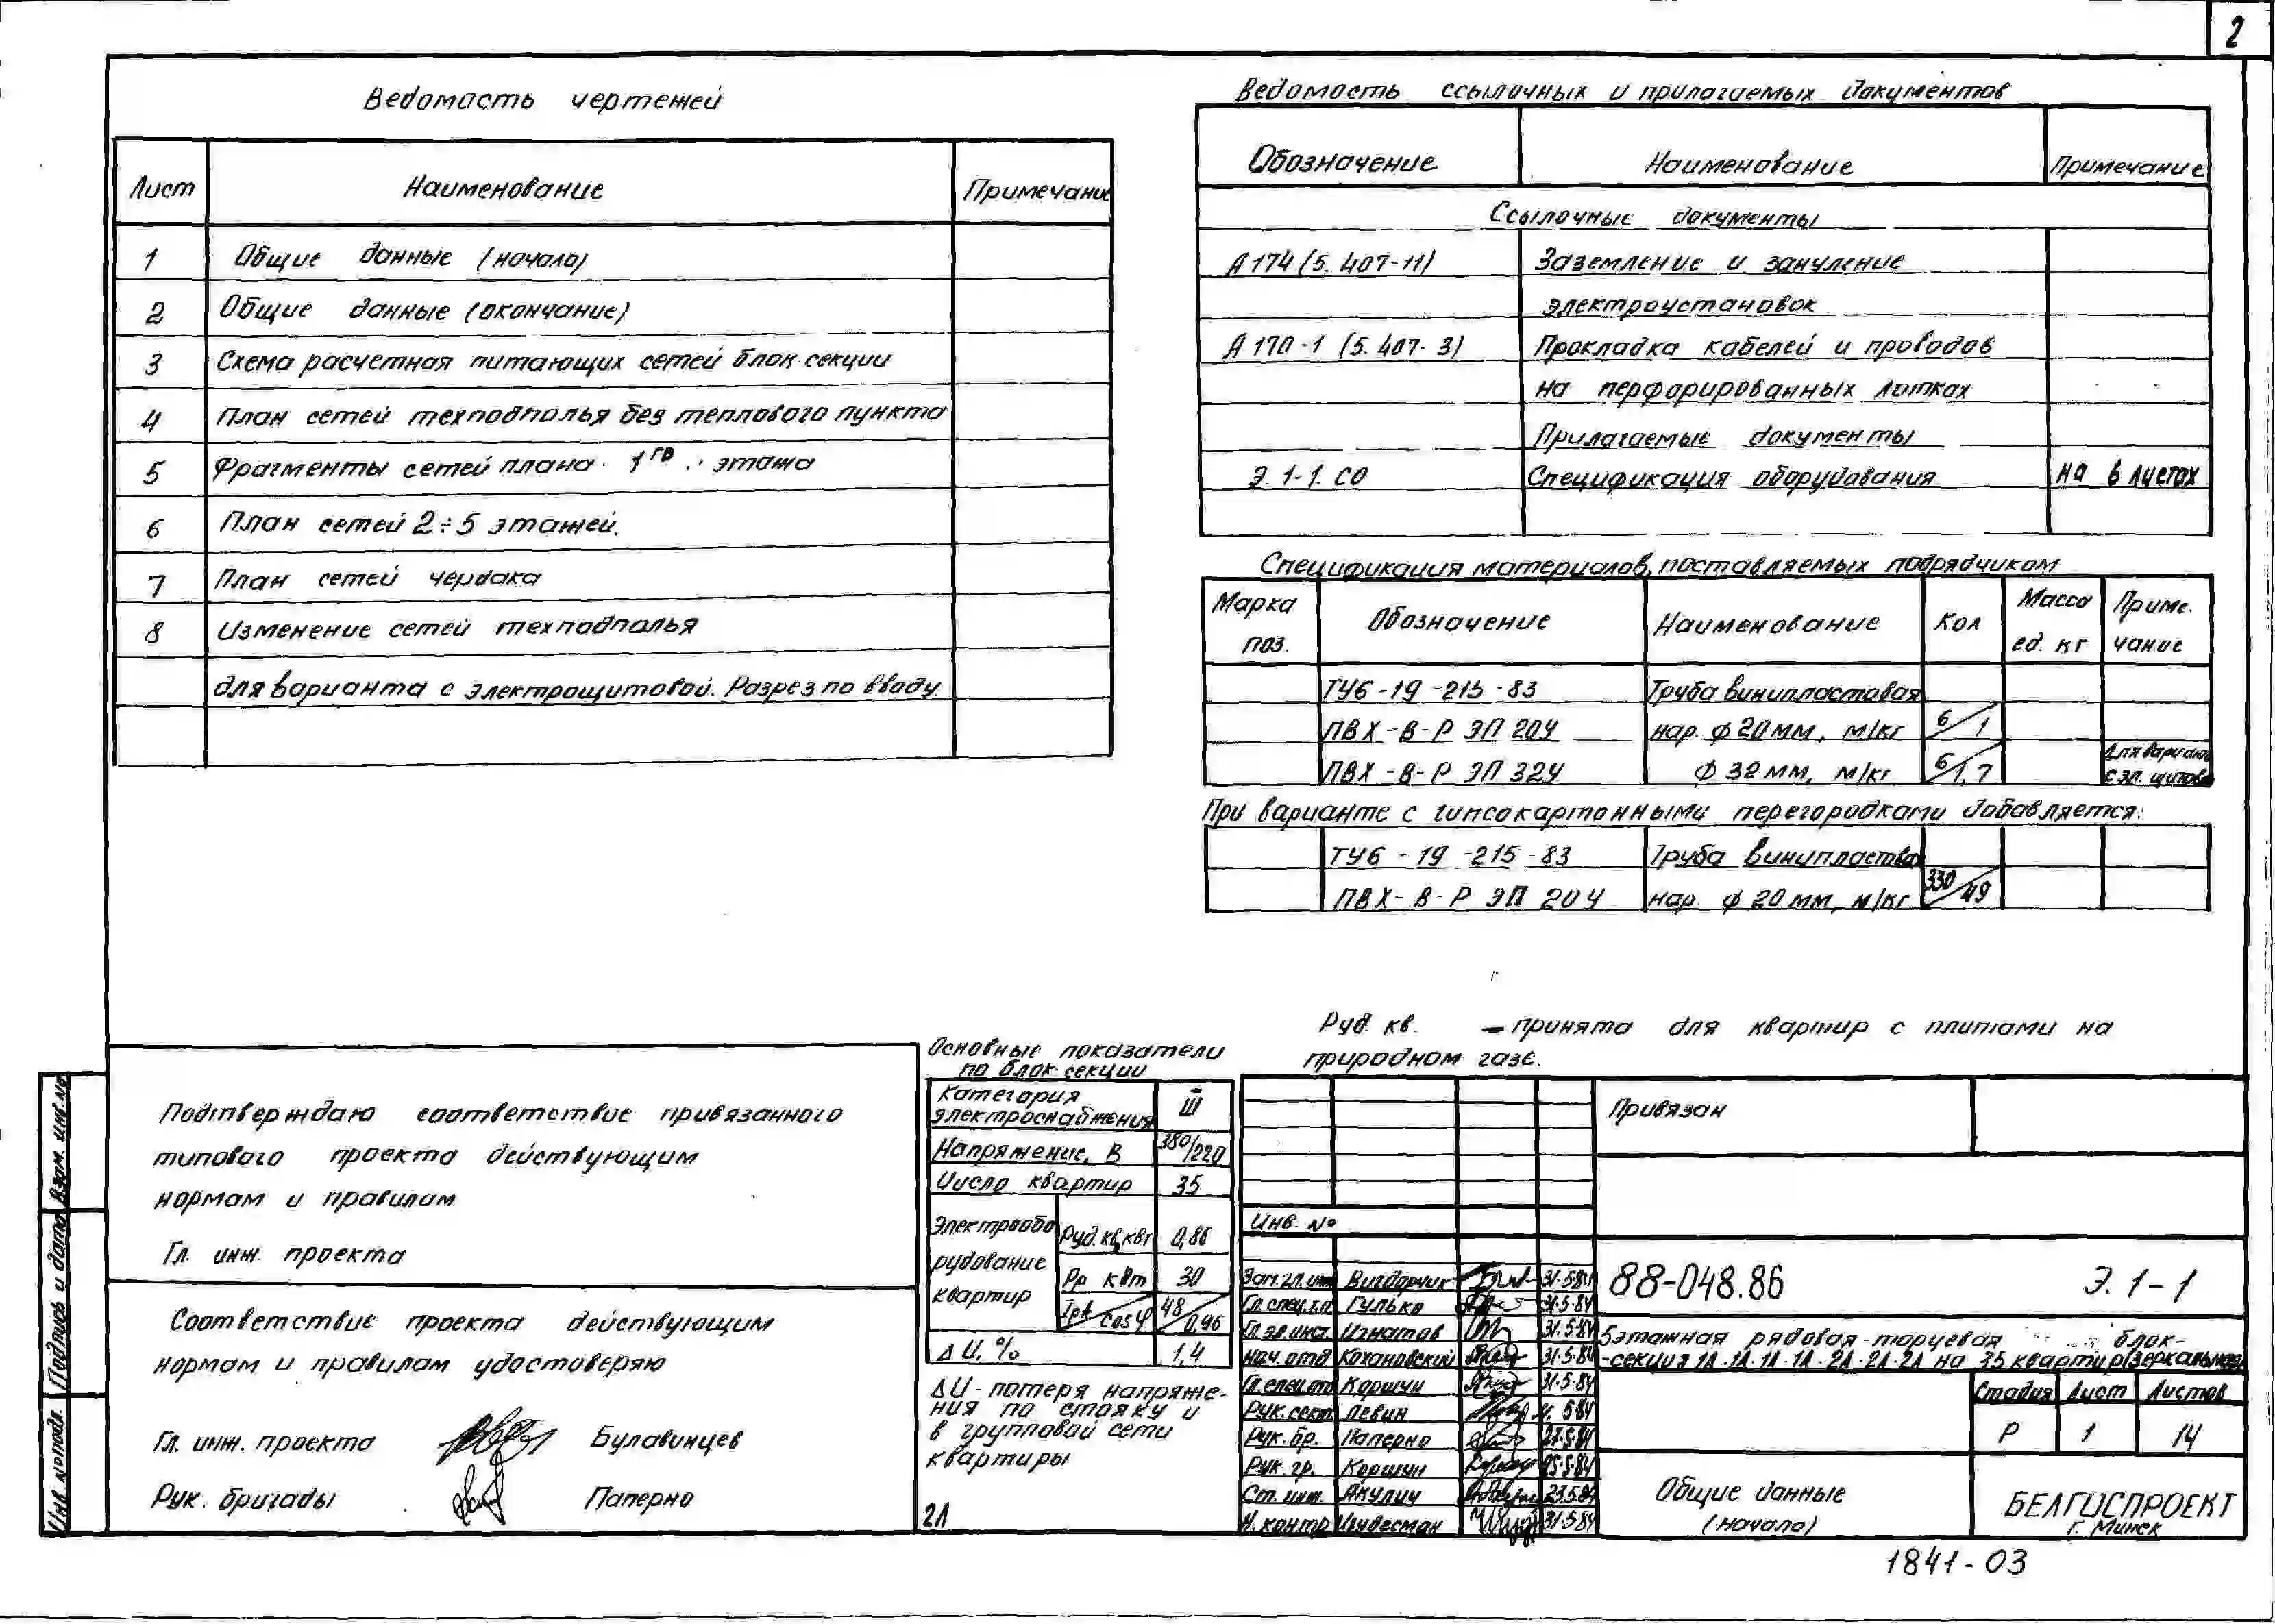 2
Ведомость чертежей
Лист Наименование Примечание
1 Общие данные (начало)
2 Общие данные (окончание)
3 Схема расчетная питающих сетей блок-секции
4 План сетей техподполья без теплового пункта
5 Фрагменты сетей плана 1го этажа
6 План сетей 2÷5 этажей.
7 План сетей чердака
8 Изменение сетей техподполья
для варианта с электрощитовой. Разрез по вводу.
Ведомость ссылочных и прилагаемых документов
Обозначение Наименование Примечание
Ссылочные документы
А174 (5.407-11) Заземление и зануление
электроустановок
А170-1 (5.407-3) Прокладка кабелей и проводов
на перфорированных лотках
Прилагаемые документы
Э.1-1.СО Спецификация оборудования на 6 листах
Спецификация материалов, поставляемых подрядчиком
Марка поз. Обозначение Наименование Кол Масса ед. кг Приме-чание
ТУ6-19-215-83 Труба винипластовая
ПВХ-В-Р ЭП 20У нар. ф 20 мм, м/кг 6/1
ПВХ-В-Р ЭП 32У ф 32 мм, м/кг 6/1,7 Для вариан. с эл. щитов.
При варианте с гипсокартонными перегородками добавляется:
ТУ6-19-215-83 Труба винипластовая
ПВХ-В-Р ЭП 20У нар. ф 20 мм, м/кг 330/49
Руд. кв. – принята для квартир с плитами на
природном газе.
Подтверждаю соответствие привязанного
типового проекта действующим
нормам и правилам
Гл. инж. проекта
Соответствие проекта действующим
нормам и правилам удостоверяю
Гл. инж. проекта Булавинцев
Рук. бригады Паперно
Основные показатели
по блок-секции
Категория электроснабжения III
Напряжение, В 380/220
Число квартир 35
Электрообо
рудование
квартир
Руд.кв,квт 0,86
Рр квт 30
Iр А/cos φ 48/0,96
ΔU, % 1,4
ΔU - потеря напряже-
ния по стояку и
в групповой сети
квартиры
2Л
Привязан
Инв. №
Зам.гл.инж Вигдорчик 31.5.84
Гл.спец.т.о Гулько 31.5.84
Гл.эл.инст. Игнатов 31.5.84
Нач.отд Кохановский 31.5.84
Гл.спец.отд Коршун 31.5.84
Рук.сект. Левин 5.84
Рук.бр. Паперно 27.5.84
Рук.гр. Коршун 25.5.84
Ст.инж. Акулич 23.5.84
Н.контр Игудесман 31.5.84
88-048.86 Э.1-1
5этажная рядовая-торцевая блок-
-секция 1Л.1Л.1Л.1Л-2Л.2Л.2Л на 35 квартир/зеркальная/
Стадия Лист Листов
Р 1 14
Общие данные
(начало)
БЕЛГОСПРОЕКТ
г. Минск
1841-03
Инв.№подл. Подпись и дата Взам. инв.№